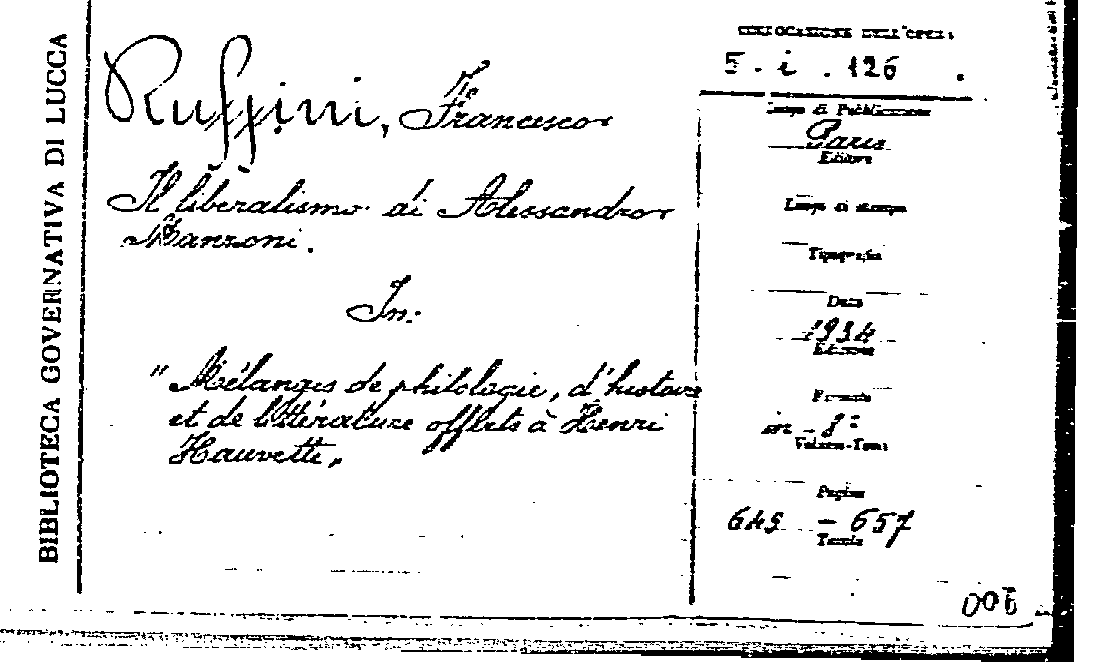 BIBLIOTECA GOVERNATIVA DI LUCCA
Ruffini, Francesco
Il liberalismo di Alessandro
Manzoni.
In:
" Mélanges de philologie, d'histoire
et de littérature offlets à Henri
Hauvette,,
COLLOCAZIONE DELL'OPERA
5. i. 126.
Luogo di Pubblicazione
Paris
Editore
Luogo di stampa
Tipografia
Data
1934
Edizione
Formato
in - 8°
Volume-Tomo
Pagine
649 - 657
Tavole